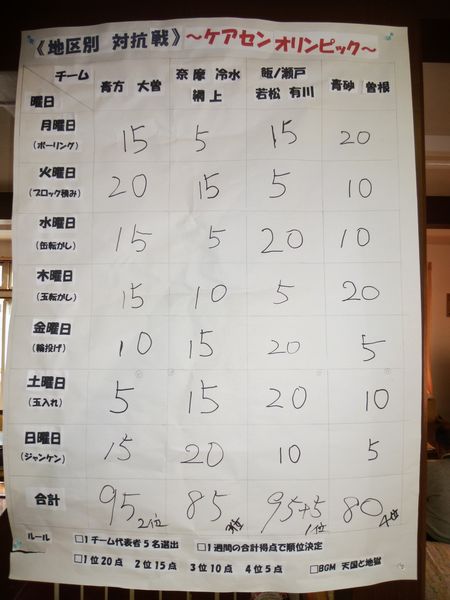 《地区別 対抗戦》 ～ケアセン オリンピック～
チーム
曜日
青方 大曽
奈摩 冷水
網上
飯ノ瀬戸
若松 有川
青砂 曽根
月曜日 15 5 15 20
(ボーリング)
火曜日 20 15 5 10
(ブロック積み)
水曜日 15 5 20 10
(缶転がし)
木曜日 15 10 5 20
(玉転がし)
金曜日 10 15 20 5
(輪投げ)
土曜日 5 15 20 10
(玉入れ)
日曜日 15 20 10 5
(ジャンケン)
合計 95 2位 85 3位 95+5 1位 80 4位
ルール
□1チーム代表者5名選出 □1週間の合計得点で順位決定
□1位20点 2位15点 3位10点 4位5点 □BGM 天国と地獄